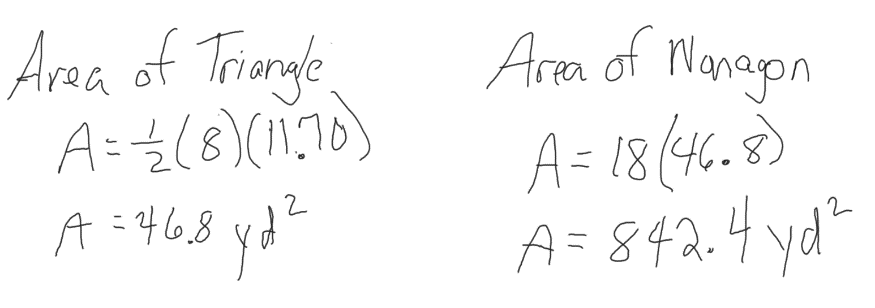 Area of Triangle
A = ½(8)(11.70)
A = 46.8 yd²
Area of Nonagon
A = 18(46.8)
A = 842.4 yd²